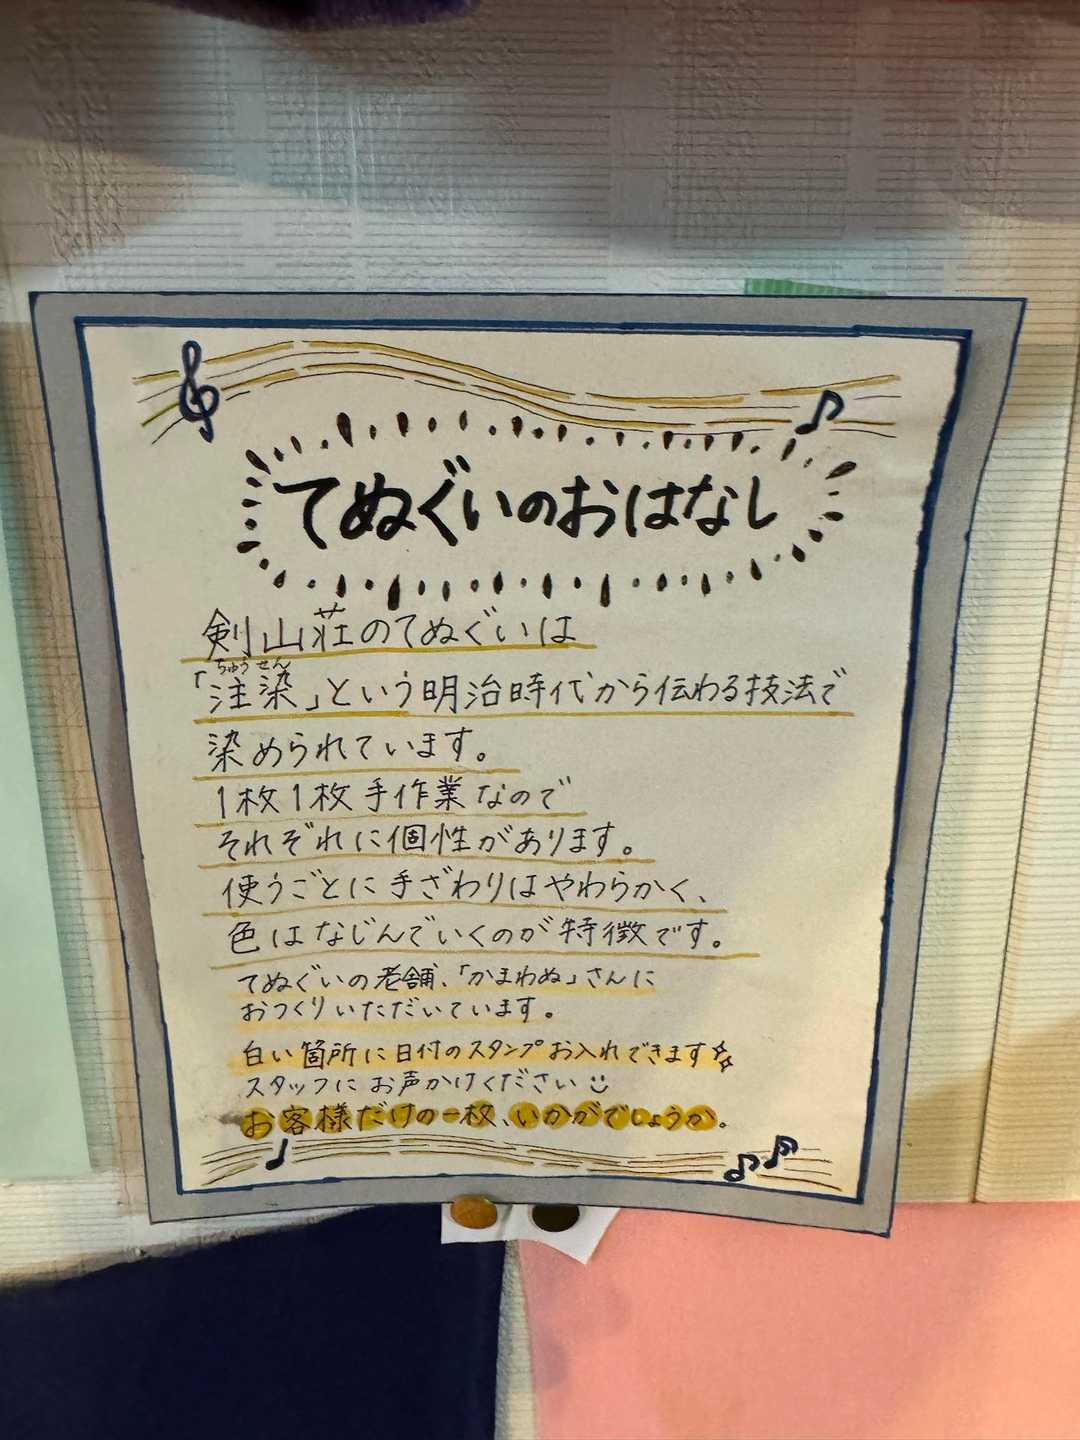 てぬぐいのおはなし
剣山荘のてぬぐいは
ちゅうせん
「注染」という明治時代から伝わる技法で
染められています。
1枚1枚手作業なので
それぞれに個性があります。
使うごとに手ざわりはやわらかく、
色はなじんでいくのが特徴です。
てぬぐいの老舗、「かまわぬ」さんに
おつくりいただいています。
白い箇所に日付のスタンプお入れできます☆
スタッフにお声かけください
お客様だけの一枚、いかがでしょうか。